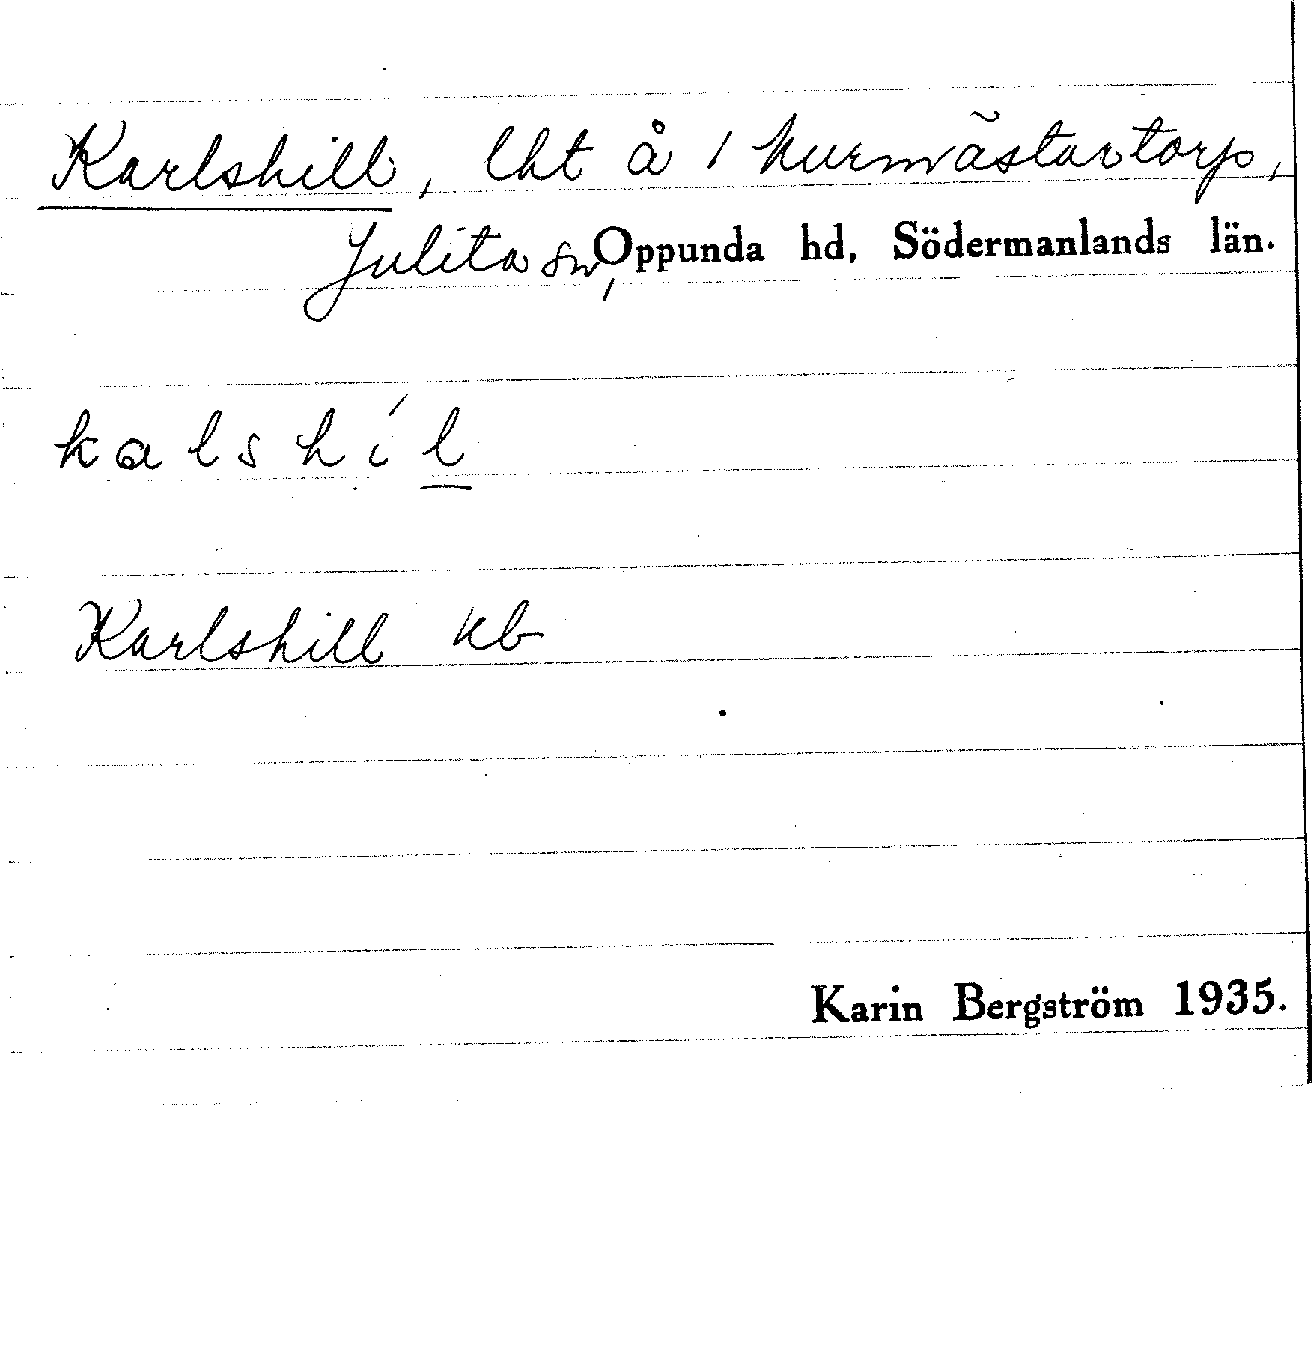 Karlshill, lht å 1 kurmästartorp,
Julita sn, Oppunda hd, Södermanlands län.
kalshíl
Karlshill kb
Karin Bergström 1935.